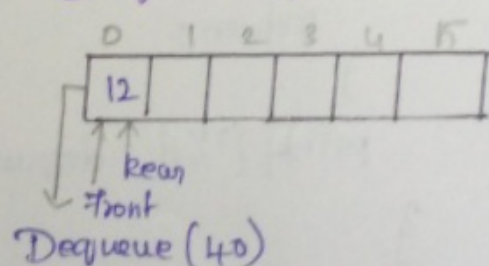 0 1 2 3 4 5
12
Rear
Front
Dequeue (40)